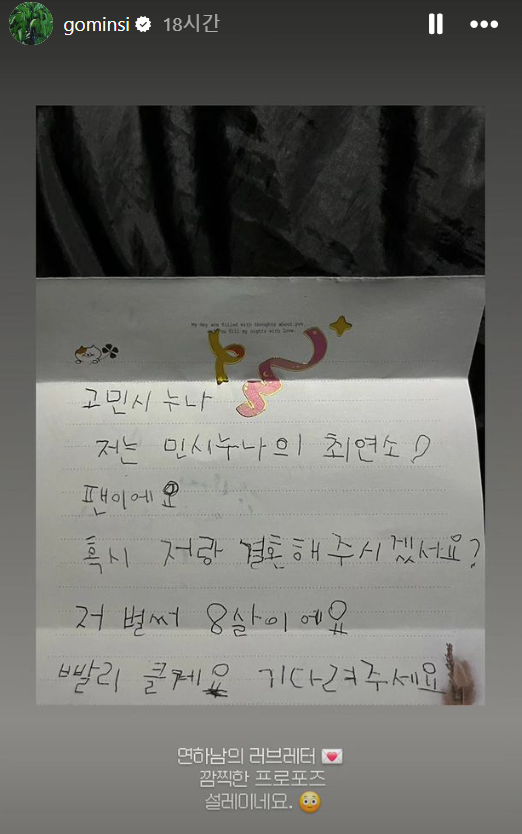 gominsi 18시간
My day are filled with thoughts about you
you fill my nights with love.
고민시 누나
저는 민시누나의 최연소
팬이에요
혹시 저랑 결혼해주시겠서요?
저 벌써 8살이에요
빨리 클게요 기다려주세요
연하남의 러브레터 💌
깜찍한 프로포즈
설레이네요. 😳